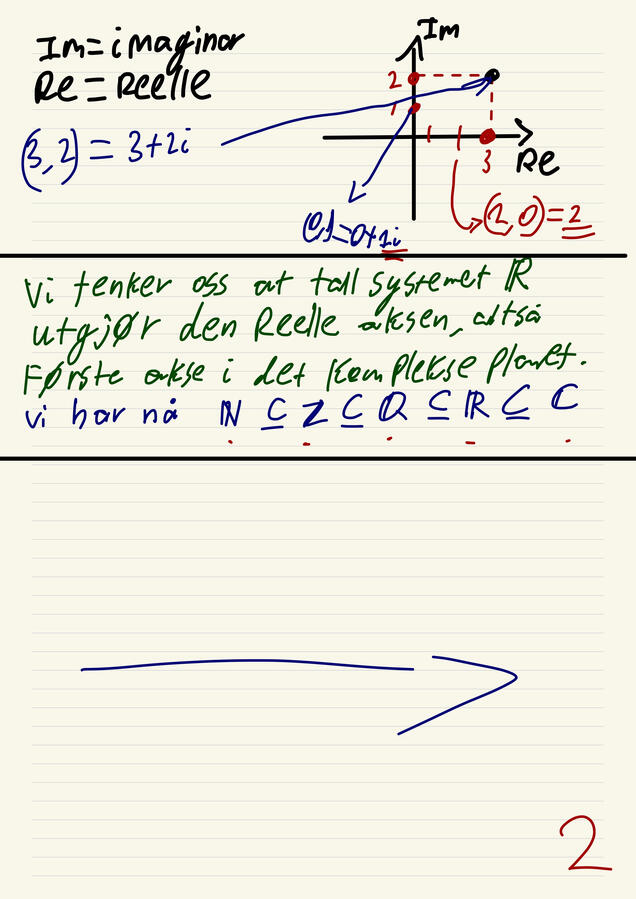 Im = imaginær
Re = Reelle
(3,2) = 3+2i
Im
2
1
3
Re
(0,1)=0+1i
(2,0)=2
Vi tenker oss at tall systemet ℝ
utgjør den Reelle aksen, altså
Første akse i det komplekse planet.
vi har nå ℕ ⊆ ℤ ⊆ ℚ ⊆ ℝ ⊆ ℂ
2